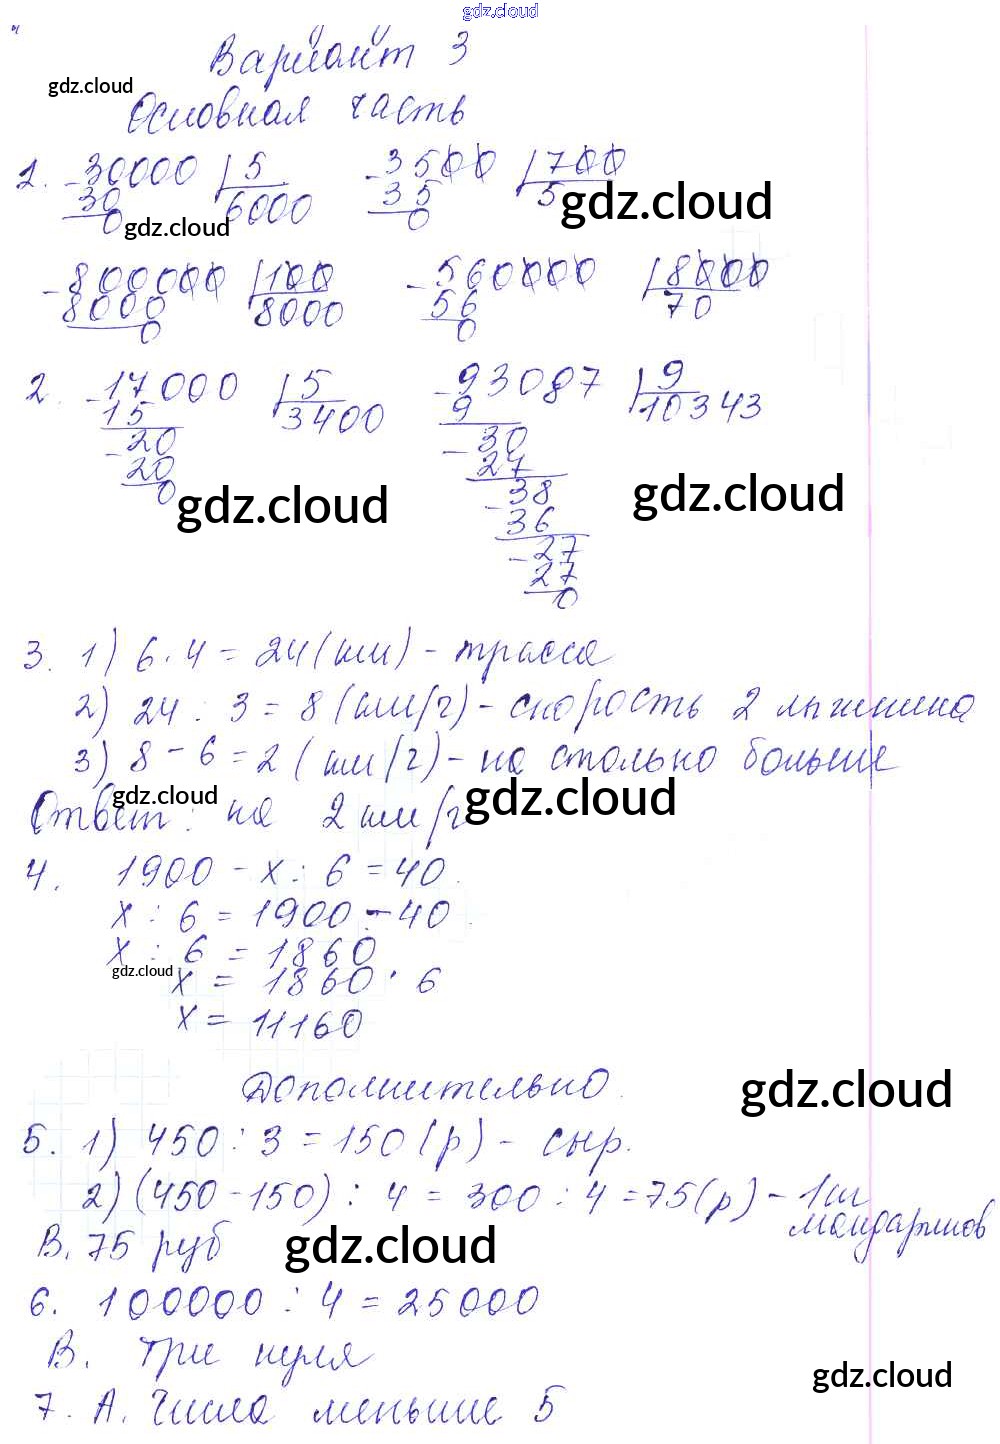 gdz.cloud
Вариант 3
gdz.cloud
Основная часть
1. -30000 |5 -3500 |700
30 6000 35 5 gdz.cloud
0 gdz.cloud 0
-800000 |100 -560000 |8000
8000 8000 56 70
0 0
2. -17000 |5 -93087 |9
15 3400 9 10343
-20 -30
20 27
0 -38
gdz.cloud gdz.cloud
36
-27
27
0
3. 1) 6 · 4 = 24 (км) - трасса
2) 24 : 3 = 8 (км/г) - скорость 2 лыжника
3) 8 - 6 = 2 (км/г) - на столько больше
gdz.cloud gdz.cloud
Ответ: на 2 км/г
4. 1900 - x : 6 = 40
x : 6 = 1900 - 40
x : 6 = 1860
gdz.cloud
x = 1860 · 6
x = 11160
Дополнительно
gdz.cloud
5. 1) 450 : 3 = 150 (р) - сыр.
2) (450 - 150) : 4 = 300 : 4 = 75 (р) - 1 кг
мандаринов
В. 75 руб
gdz.cloud
6. 100000 : 4 = 25000
В. Три нуля
gdz.cloud
7. А. Числа меньше 5